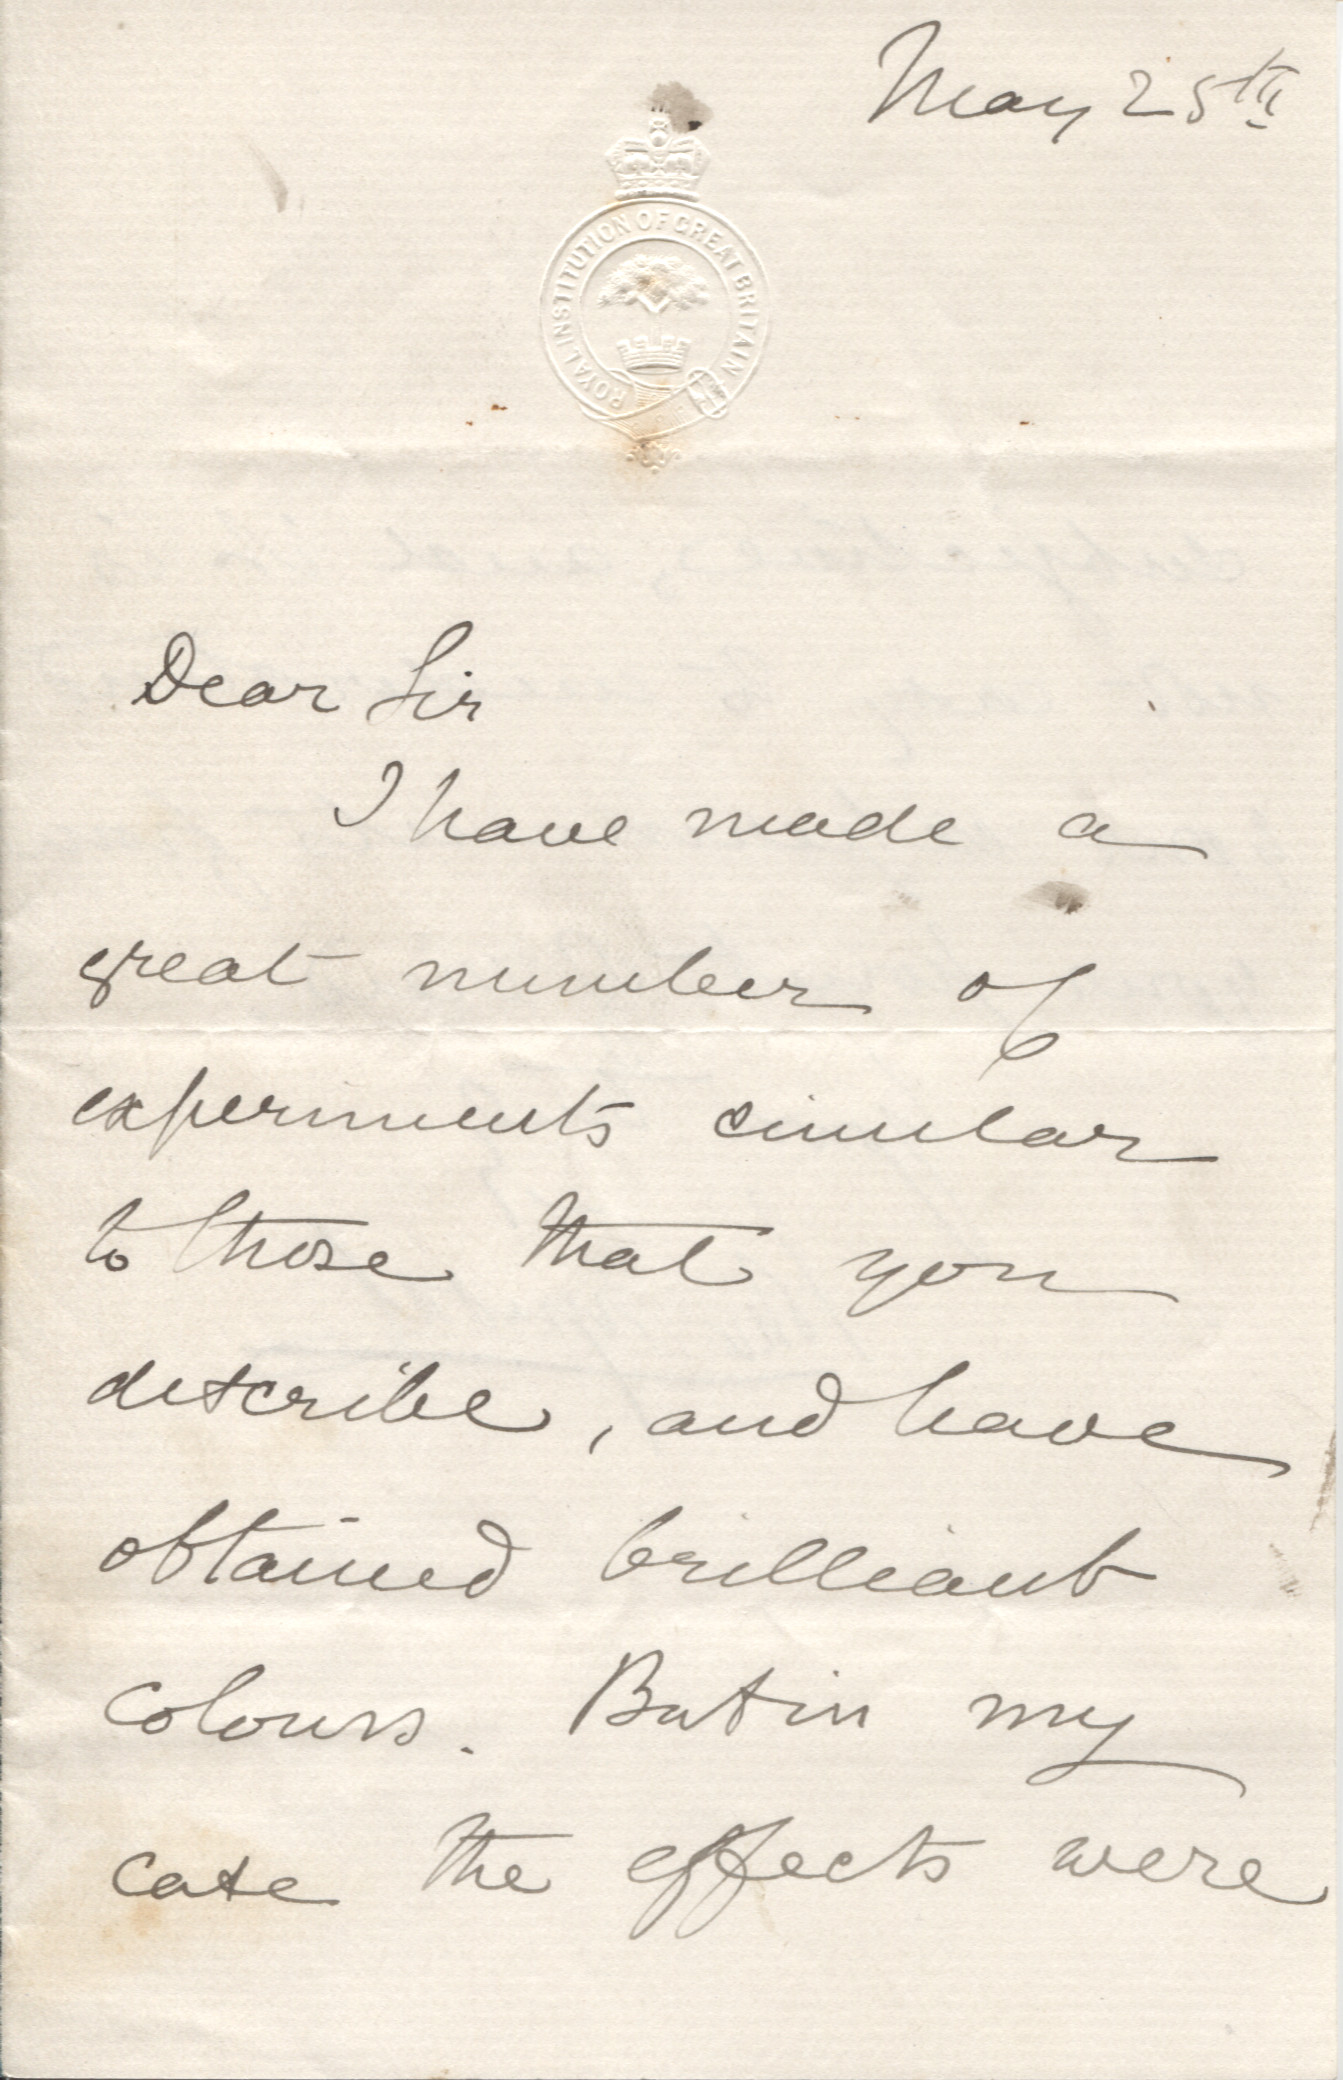 May 25th
ROYAL INSTITUTION OF GREAT BRITAIN
Dear Sir
I have made a
great number of
experiments similar
to those that you
describe, and have
obtained brilliant
colours. But in my
case the effects were